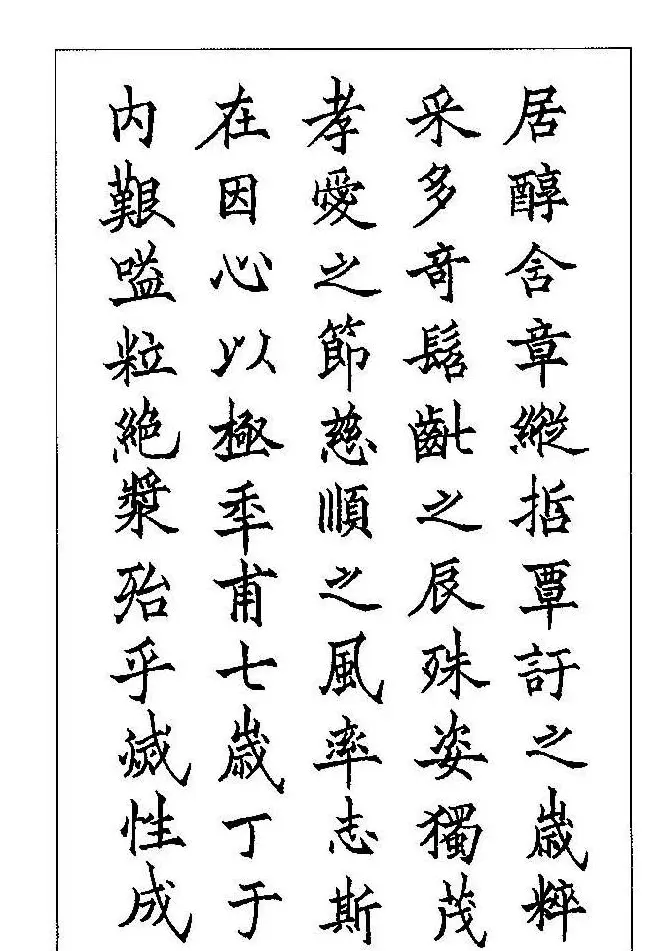 居醇舍章縱哲覃訏之歲粹
采多竒髫齔之辰殊姿獨茂
孝愛之節慈順之風率志斯
在因心以極年甫七歲丁于
内艱嗌粒絶漿殆乎滅性成